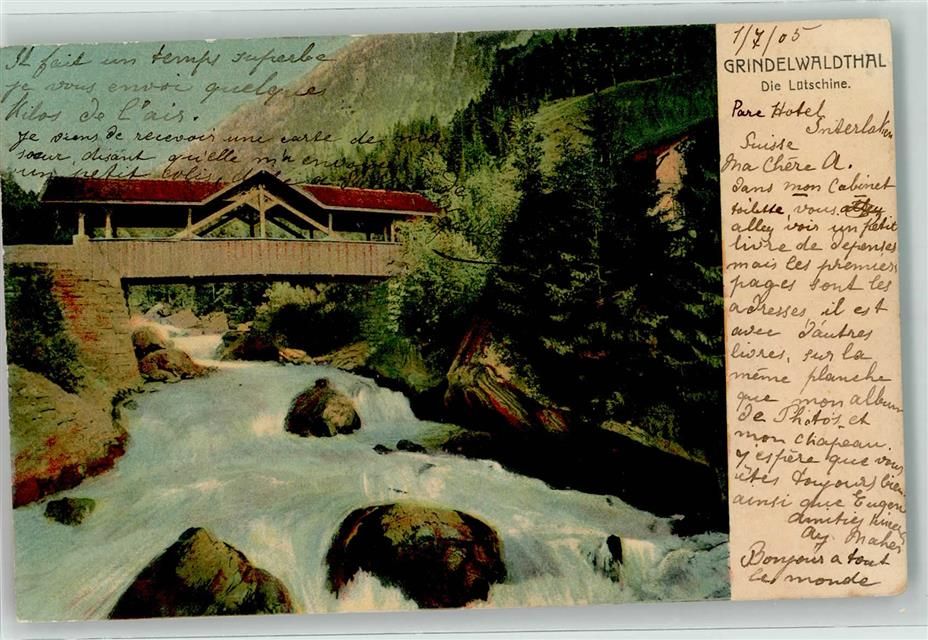 Il fait un temps superbe
je vous envoi quelques
Kilos de l'air.
Je viens de recevoir une carte de
sœur, disant qu'elle m'a
un petit
1/7/05
GRINDELWALDTHAL
Die Lütschine.
Parc Hotel
Interlaken
Suisse
Ma Chère A.
dans mon Cabinet
toilette, vous
alley voir un petit
livre de depenses
mais les premiers
pages sont les
adresses, il est
avec d'autres
livres, sur la
même planche
que mon album
de Photos, et
mon chapeau.
J'espère que vous
êtes toujours bien
ainsi que Eugen
amitiés
Bonjour a tout
le monde